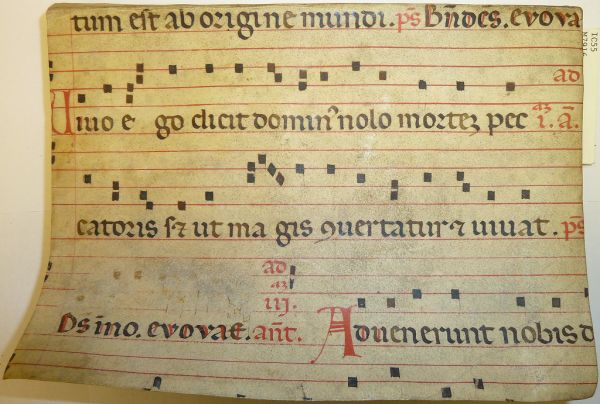 tum est ab origine mundi. ps Bn̄dc̄s. evova
ad
Uiuo e go dicit domin⁹ nolo mortez pec az i. ā.
catoris sꝫ ut ma gis ꝯuertatur ⁊ uiuat. ps
ad
az
Ds ī no. evovae. an̄t. iij. Aduenerunt nobis d
IC55